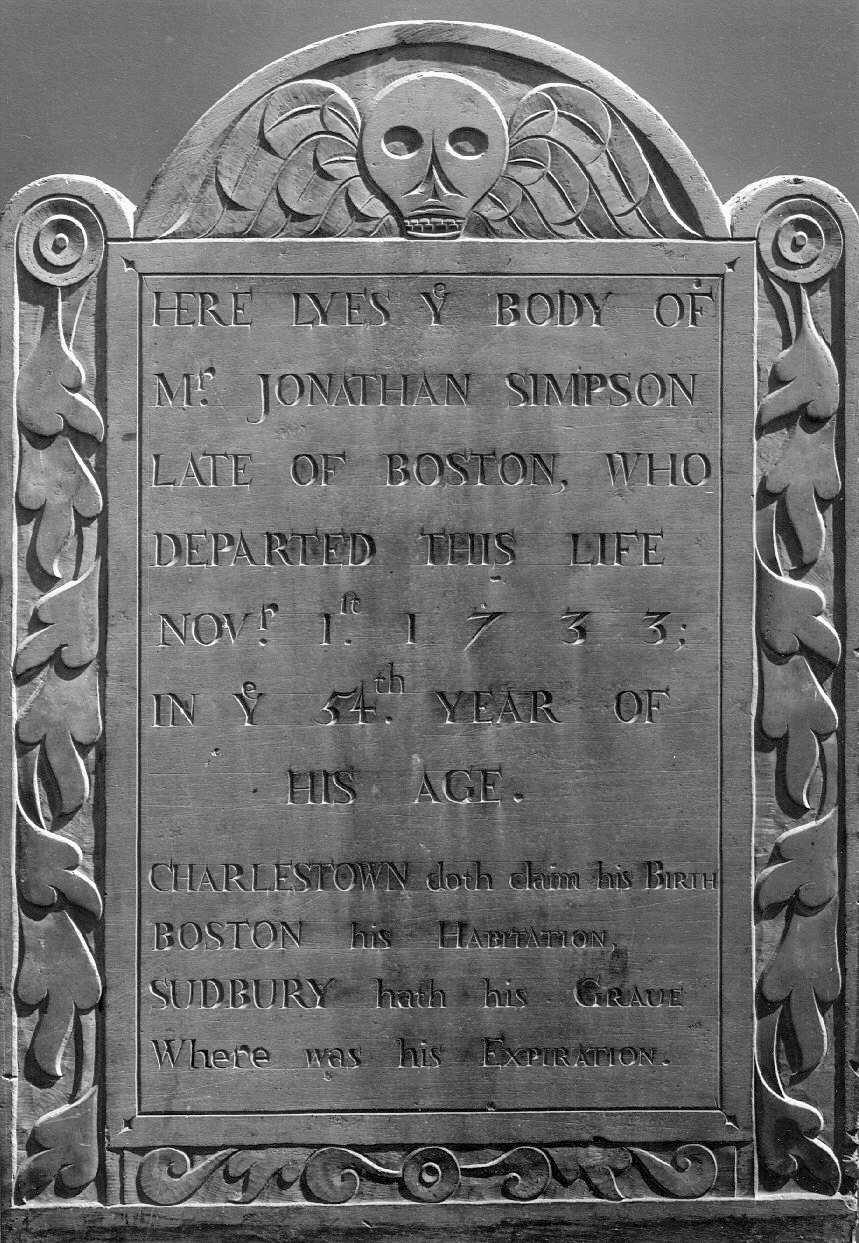 HERE LYES yͤ BODY OF
Mʳ. JONATHAN SIMPSON
LATE OF BOSTON, WHO
DEPARTED THIS LIFE
NOVʳ. 1ˢᵗ. 1733;
IN yͤ 54ᵗʰ. YEAR OF
HIS AGE.
CHARLESTOWN doth claim his BIRTH
BOSTON his HABITATION,
SUDBURY hath his GRAUE
Where was his EXPIRATION.